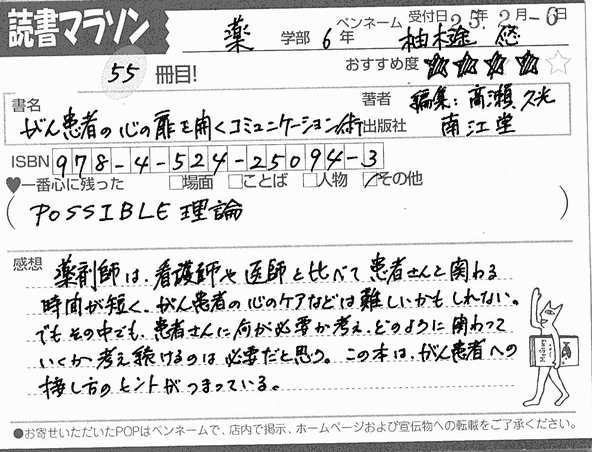 読書マラソン
薬 学部 6年
ペンネーム 柚木 悠
受付日 25年 2月-6日
55 冊目!
おすすめ度 ★★★★☆
書名 がん患者の心の扉を開くコミュニケーション術
著者 編集:高瀬久光
出版社 南江堂
ISBN 978-4-524-25094-3
♥一番心に残った □場面 □ことば □人物 ☑その他
(POSSIBLE理論)
感想 薬剤師は、看護師や医師と比べて患者さんと関わる
時間が短く、がん患者の心のケアなどは難しいかもしれない。
でもその中でも、患者さんに何が必要か考え、どのように関わって
いくか考え続けるのは必要だと思う。この本は、がん患者への
接し方のヒントがつまっている。
●お寄せいただいたPOPはペンネームで、店内で掲示、ホームページおよび宣伝物への転載をご了承ください。